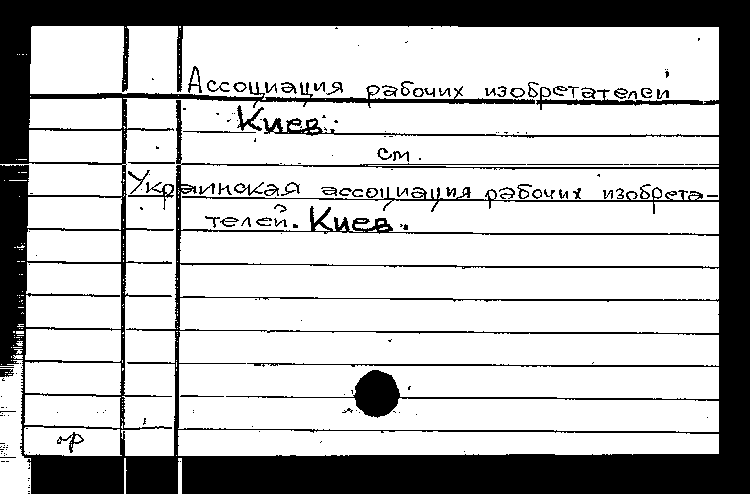 Ассоциация рабочих изобретателей
Киев.
см.
Украинская ассоциация рабочих изобрета-
телей. Киев.
ор